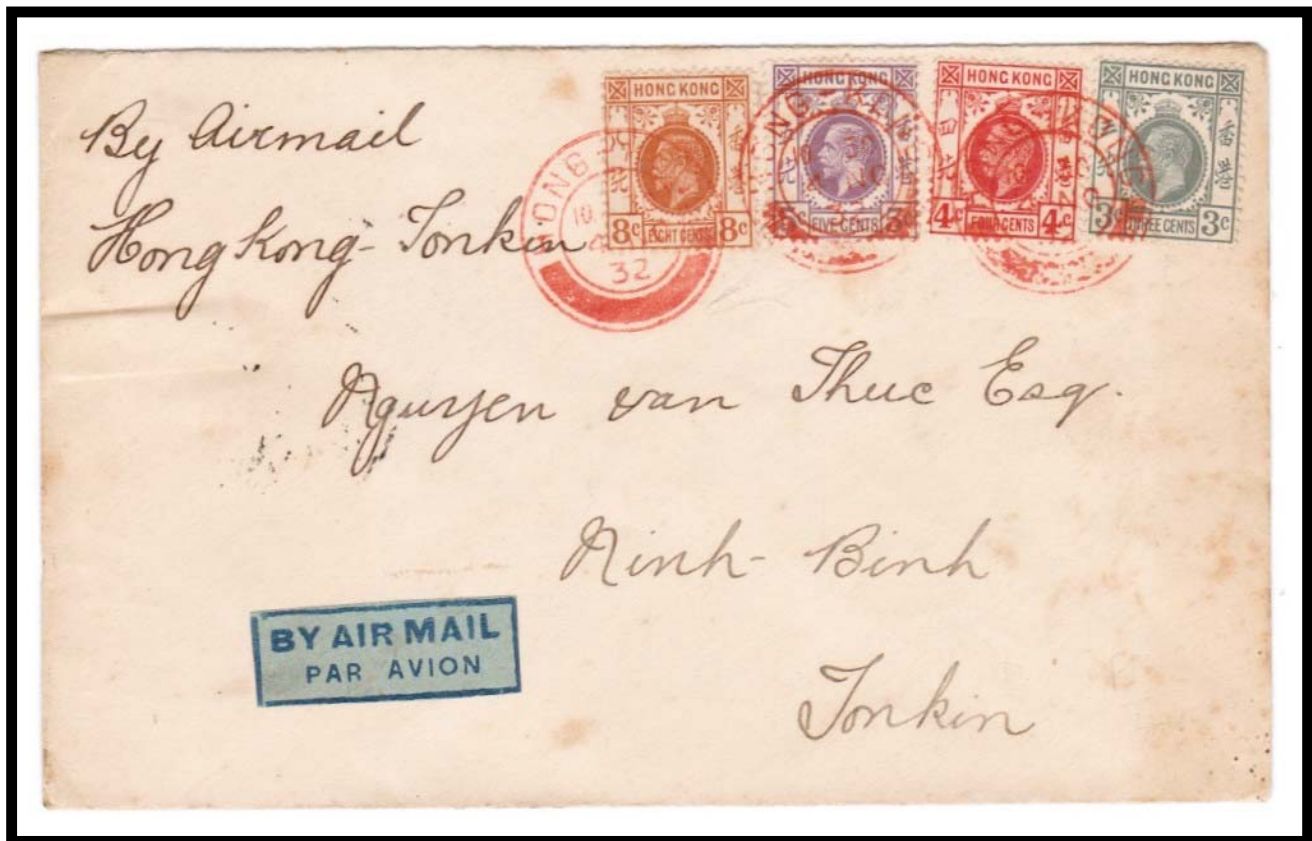 By Airmail
Hong Kong - Tonkin
HONG KONG
香港
8c EIGHT CENTS 8c
HONG KONG
FIVE CENTS
HONG KONG
四
4c FOUR CENTS 4c
HONG KONG
香港
3c THREE CENTS 3c
HONG
10
32
Nguyen van Thuc Esq.
Ninh-Binh
Tonkin
BY AIR MAIL
PAR AVION